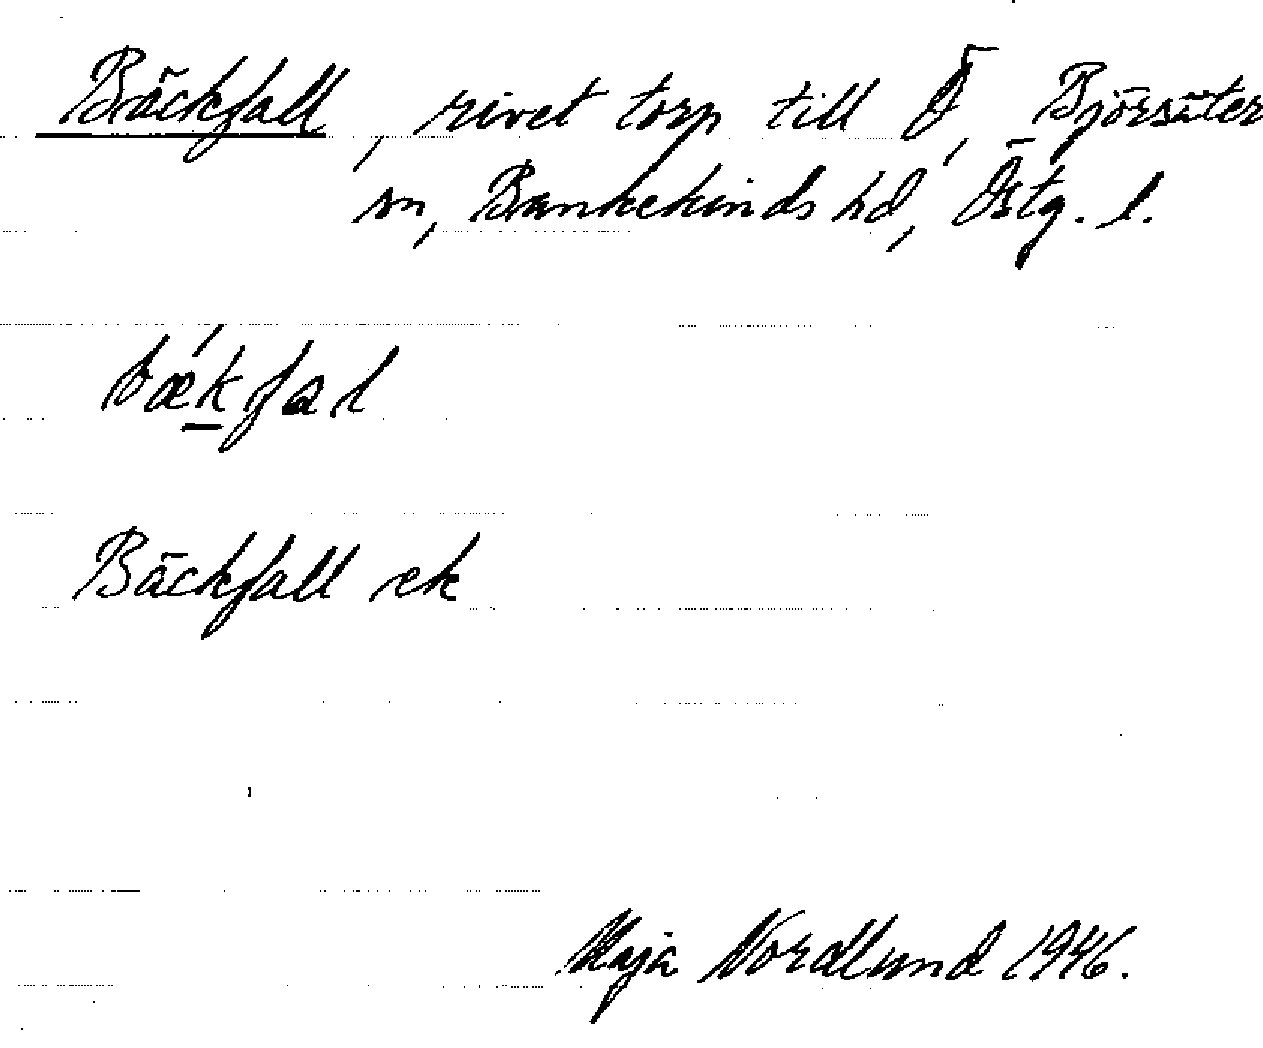 Bäckfall, rivet torp till Ö, Björsäter
sn, Bankekinds hd, Östg. l.
bæ̱k´fal
Bäckfall ek
Maja Nordlund 1946.